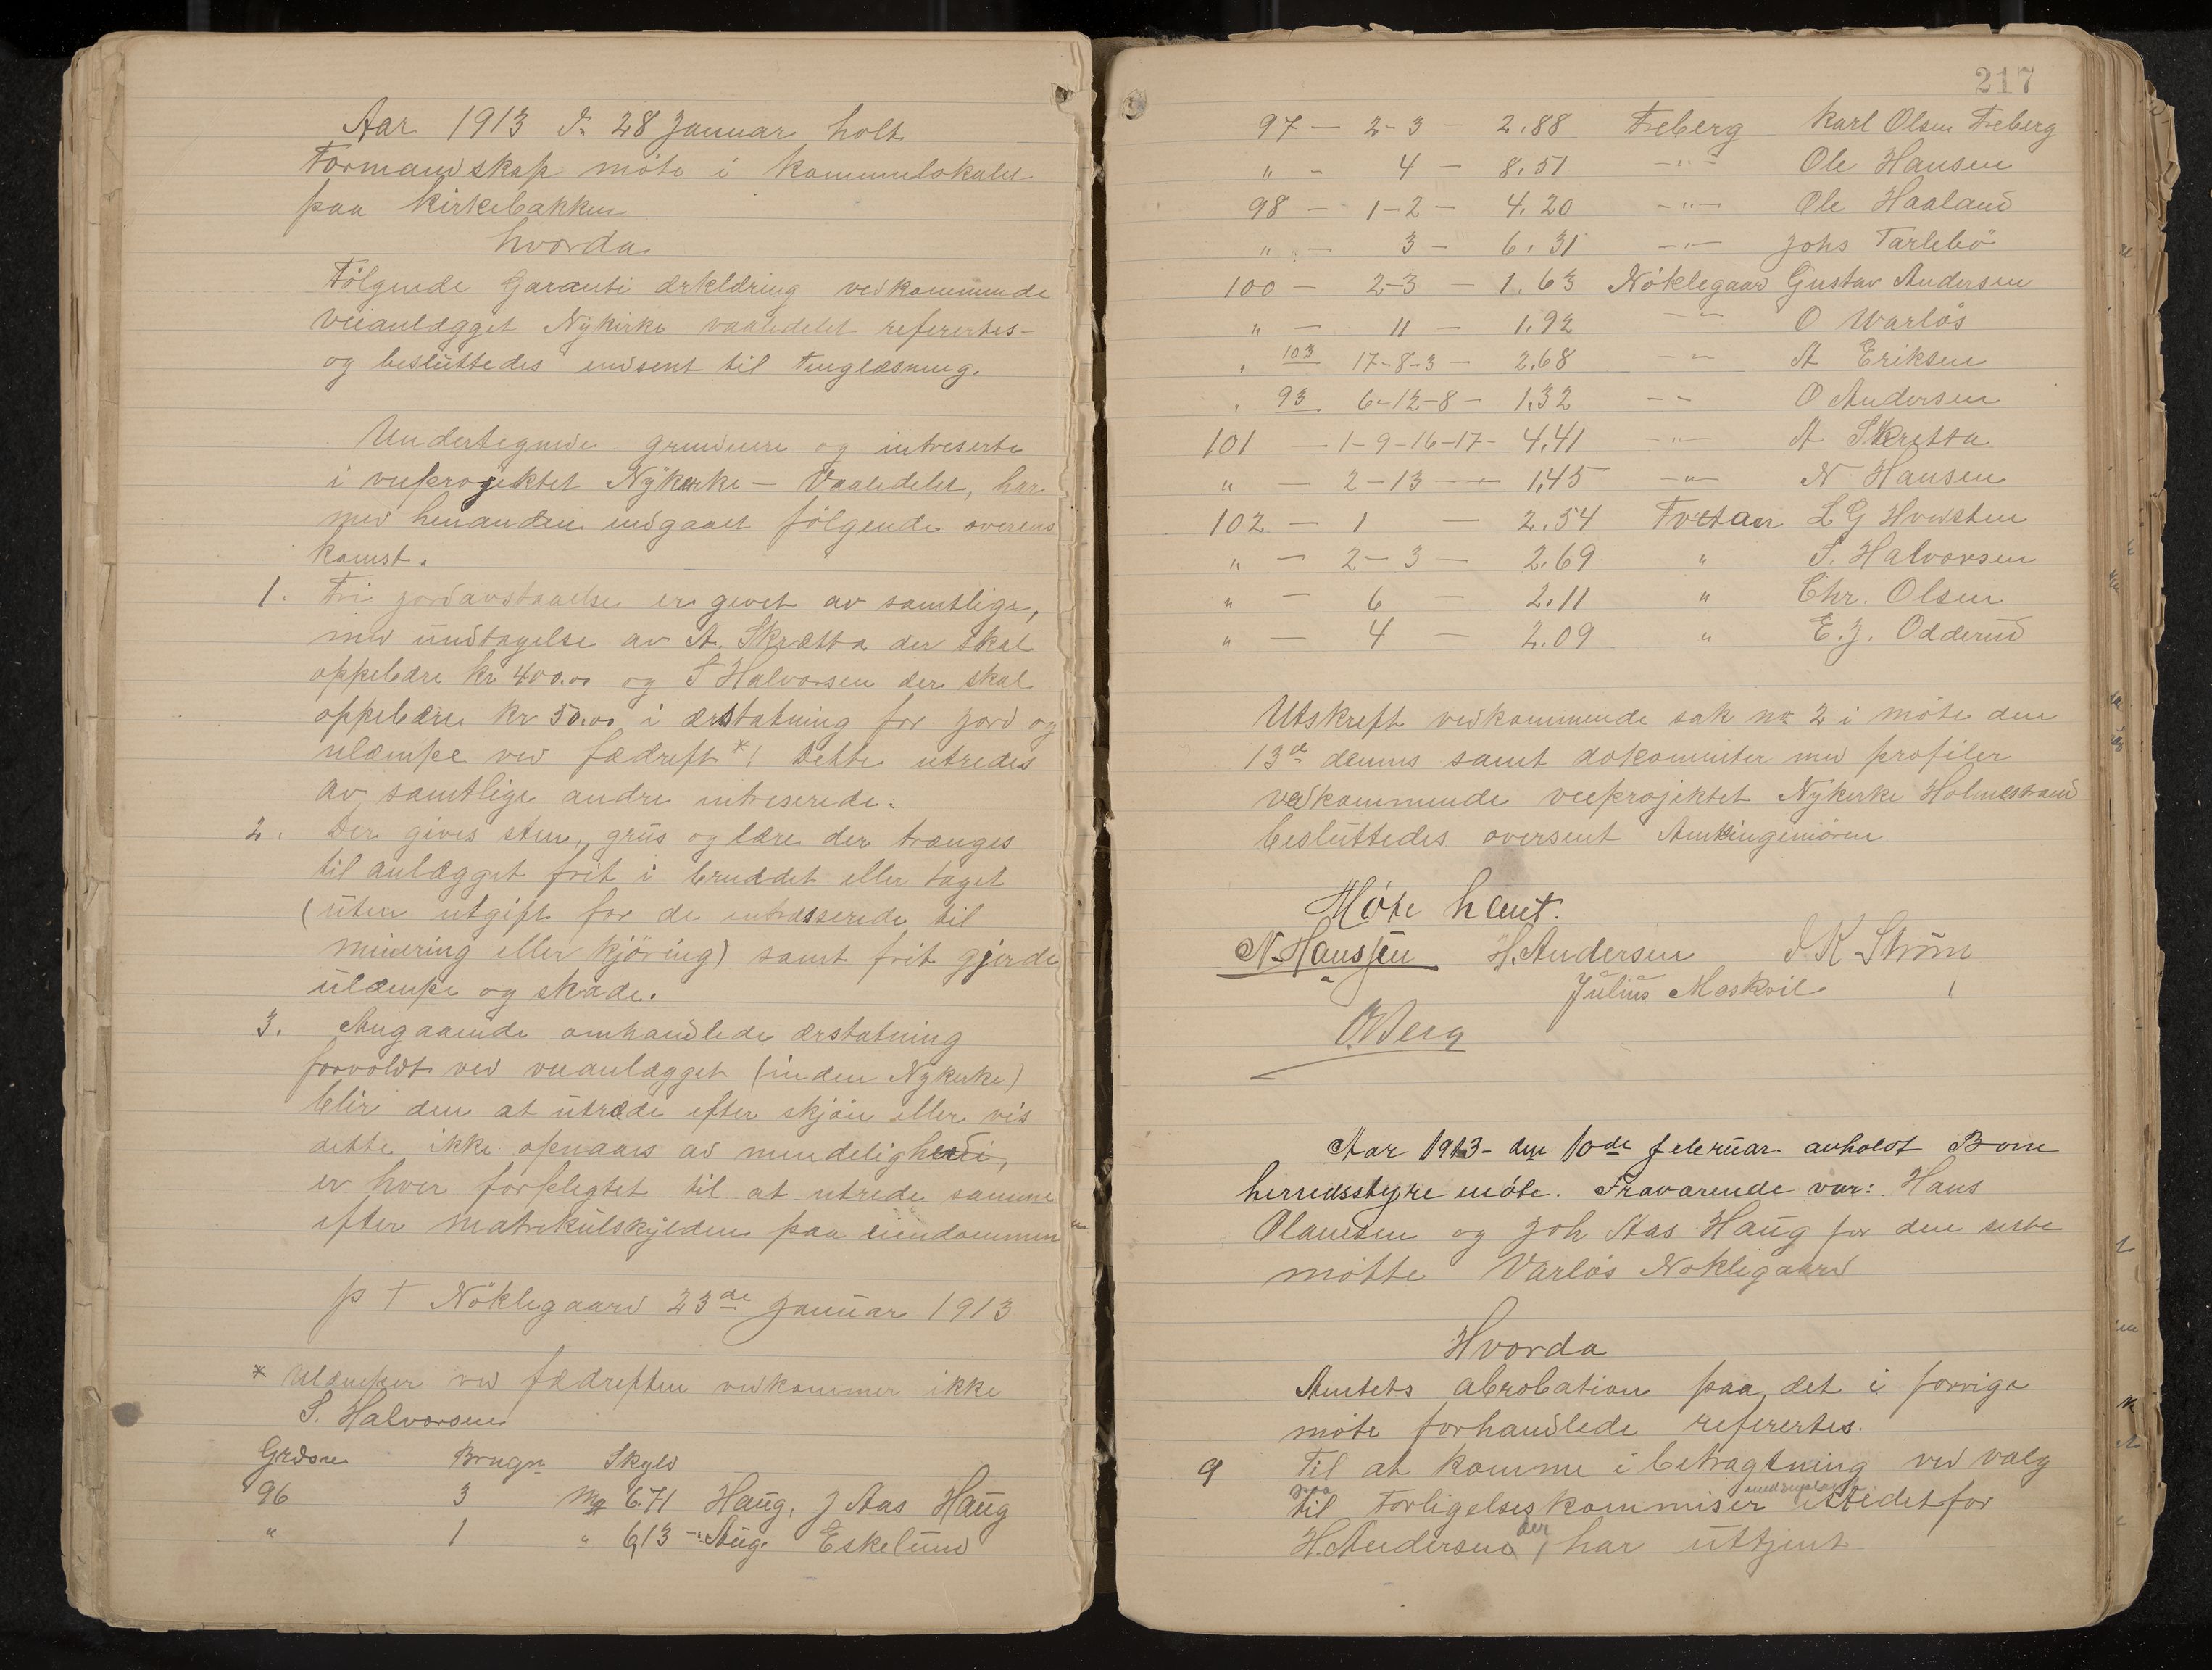 Aar 1913 d. 28 Januar holt
Formandskap möte i kommunelokalet
paa Kirkebakken
hvorda
Fölgende Garanti ærklæring vedkommende
veianlægget Nykirke vaaledelet refertes
og besluttedes indsent til tinglæsning.
Undertegnede grundeiere og intreserte
i veiprojektet Nykirke — Vaaledelet, har
med hinanden indgaaet fölgende overens
komst.
1. Fri jordavstaaelse er givet av samtlige,
med undtagelse av A. Skrætta der skal
oppebære kr 400.00 og S Halvorsen der skal
oppebære kr 50.00 i ærstatning for jord og
ulæmpe ved fædrift *! Dette utredes
av samtlige andre intreserede.
2. Der gives sten, grus og lære der trænges
til anlægget frit i bruddet eller taget
(uten utgift for de intræsserede til
minering eller kjöring) samt frit gjerde
ulæmpe og skade.
3. Angaaende omhandlede ærstatning
forvoldt ved veianlægget (inden Nykirke)
blir den at utræde efter skjön eller vis
dette ikke opnaaes av mindelighed,
er hver forpligtet til at utrede samme
efter matrikulskylden paa eiendommen
p t Nöklegaard 23de Januar 1913
* Ulæmper ved fædriften vedkommer ikke
S. Halvorsen
Grdsnr Brugn Skyld
96 3 Mg 6.71 Haug, J Aas Haug
" 1 " 6,13 -"- Aug. Eskelund
217
97 — 2-3 — 2.88 Freberg Karl Olsen Freberg
" - 4 — 8.51 -"- Ole Hansen
98 — 1-2 — 4.20 -"- Ole Haaland
" — 3 — 6.31 -"- Johs Tarlebö
100 — 2-3 — 1.63 Nöklegaard Gustav Andersen
" — 11 — 1.92 -"- O Warlös
" 103 17-8-3 — 2.68 -"- A Eriksen
" 93 6-12-8 — 1.32 -"- O Andersen
101 — 1-9-16-17- 4.41 -"- A Skretta
" — 2-13 — 1.45 -"- N Hansen
102 — 1 — 2.54 Fretan L G Hvidsten
" — 2-3 — 2.69 " S. Halvorsen
" — 6 — 2.11 " Chr. Olsen
" — 4 — 2.09 " E. J. Odderud
Utskrift vedkommende sak nr 2 i möte den
13de dennes samt dokomenter med profiler
vedkommende veiprojektet Nykirke Holmestrand
besluttedes oversent Amtsingeniören
Möte hævt.
N. Hanssen H. Andersen J. K Ström
Julius Moskvil
O. Berg
Aar 1913 - den 10de februar avholdt Borre
herredsstyre möte. Fraværende var: Hans
Olausen og Joh Aas Haug for den siste
mötte Varlös Noklegaard
Hvorda
Amtets abrobation paa det i forrige
möte forhandlede refertes.
9 Til at komme i betragtning ved valg
til Forligelseskommiser istedetfor
H. Andersen, der har uttjent